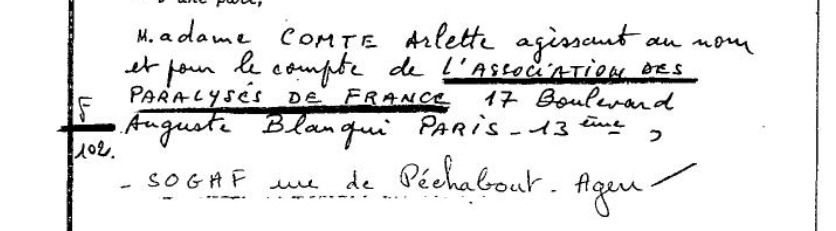 D'une part,
M.adame COMTE Arlette agissant au nom
et pour le compte de L'ASSOCIATION DES
PARALYSÉS DE FRANCE 17 Boulevard
F
Auguste Blanqui PARIS - 13 ème,
102.
- SOGAF rue de Péchabout - Agen